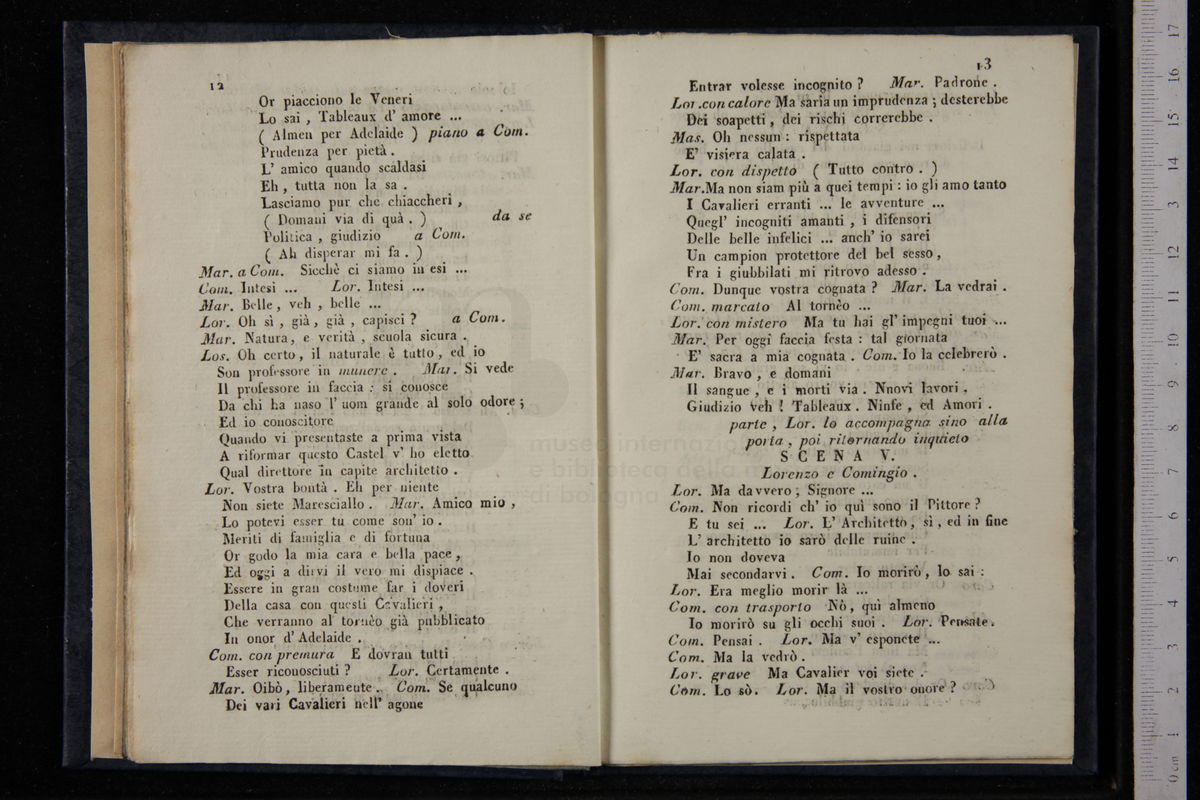 12
Or piacciono le Veneri
Lo sai , Tableaux d' amore ...
( Almen per Adelaide ) piano a Com.
Prudenza per pietà .
L' amico quando scaldasi
Eh , tutta non la sa .
Lasciamo pur che chiaccheri ,
( Domani via di quà . ) da se
Politica , giudizio a Com.
( Ah disperar mi fa . )
Mar. a Com. Sicchè ci siamo in esi ...
Com. Intesi ... Lor. Intesi ...
Mar. Belle , veh , belle ...
Lor. Oh sì , già , già , capisci ? a Com.
Mar. Natura , e verità , scuola sicura .
Los. Oh certo , il naturale è tutto , ed io
Son professore in munere . Mar. Si vede
Il professore in faccia : si conosce
Da chi ha naso l' uom grande al solo odore ;
Ed io conoscitore
Quando vi presentaste a prima vista
A riformar questo Castel v' ho eletto
Qual direttore in capite architetto .
Lor. Vostra bontà . Eh per niente
Non siete Maresciallo . Mar. Amico mio ,
Lo potevi esser tu come son' io .
Meriti di famiglia e di fortuna
Or godo la mia cara e bella pace ,
Ed oggi a dirvi il vero mi dispiace .
Essere in gran costume far i doveri
Della casa con questi Cavalieri ,
Che verranno al tornèo già pubblicato
In onor d' Adelaide .
Com. con premura E dovran tutti
Esser riconosciuti ? Lor. Certamente .
Mar. Oibò , liberamente . Com. Se qualcuno
Dei vari Cavalieri nell' agone
13
Entrar volesse incognito ? Mar. Padrone .
Lor .con calore Ma saria un imprudenza ; desterebbe
Dei soapetti , dei rischi correrebbe .
Mas. Oh nessun : rispettata
E' visiera calata .
Lor. con dispetto ( Tutto contro . )
Mar.Ma non siam più a quei tempi : io gli amo tanto
I Cavalieri erranti ... le avventure ...
Quegl' incogniti amanti , i difensori
Delle belle infelici ... anch' io sarei
Un campion protettore del bel sesso ,
Fra i giubbilati mi ritrovo adesso .
Com. Dunque vostra cognata ? Mar. La vedrai .
Com. marcato Al tornèo ...
Lor. con mistero Ma tu hai gl' impegni tuoi ...
Mar. Per oggi faccia festa : tal giornata
E' sacra a mia cognata . Com. Io la celebrerò .
Mar. Bravo , e domani
Il sangue , e i morti via . Nnovi lavori .
Giudizio veh ! Tableaux . Ninfe , ed Amori .
parte , Lor. lo accompagna sino alla
porta , poi ritornando inquieto
SCENA V.
Lorenzo e Comingio .
Lor. Ma davvero ; Signore ...
Com. Non ricordi ch' io quì sono il Pittore ?
E tu sei ... Lor. L' Architetto , sì , ed in fine
L' architetto io sarò delle ruine .
Io non doveva
Mai secondarvi . Com. Io morirò , lo sai :
Lor. Era meglio morir là ...
Com. con trasporto Nò , quì almeno
Io morirò su gli occhi suoi . Lor. Pensate .
Com. Pensai . Lor. Ma v' esponete ...
Com. Ma la vedrò .
Lor. grave Ma Cavalier voi siete .
Com. Lo sò . Lor. Ma il vostro onore ?
museo internazionale
e biblioteca della m
di bologna
0 cm 1 2 3 4 5 6 7 8 9 10 11 12 13 14 15 16 17